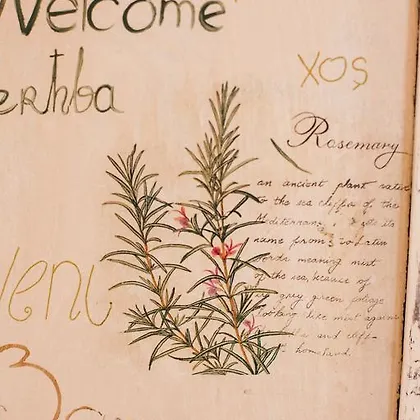 Welcome
erhba
xoş
Rosemary
an ancient plant native
to the sea cliffs of the
Mediterranean its
name from Latin
words meaning mist
of the sea, because of
grey green foliage
looking like mist against
and cliff-
homeland
veni